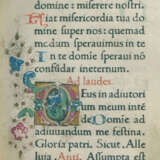 domine: miserere nostri.
Fiat misericordia tua do
mine super nos: quemad
modum sperauimus in te
In te domine speraui: non
confundar ineternum.
Ad laudes.
Deus in adiutori
um meum inte
de. Domine ad
adiuuandum me festina.
Gloria patri. Sicut.
Alleluia. Anti. Assumpta est